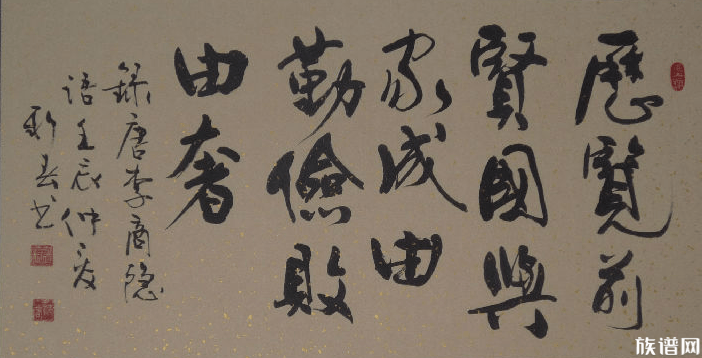 歷覽前
賢國與
家成由
勤儉敗
由奢
錄唐李商隐
语壬辰仲夏
新春书
族谱网